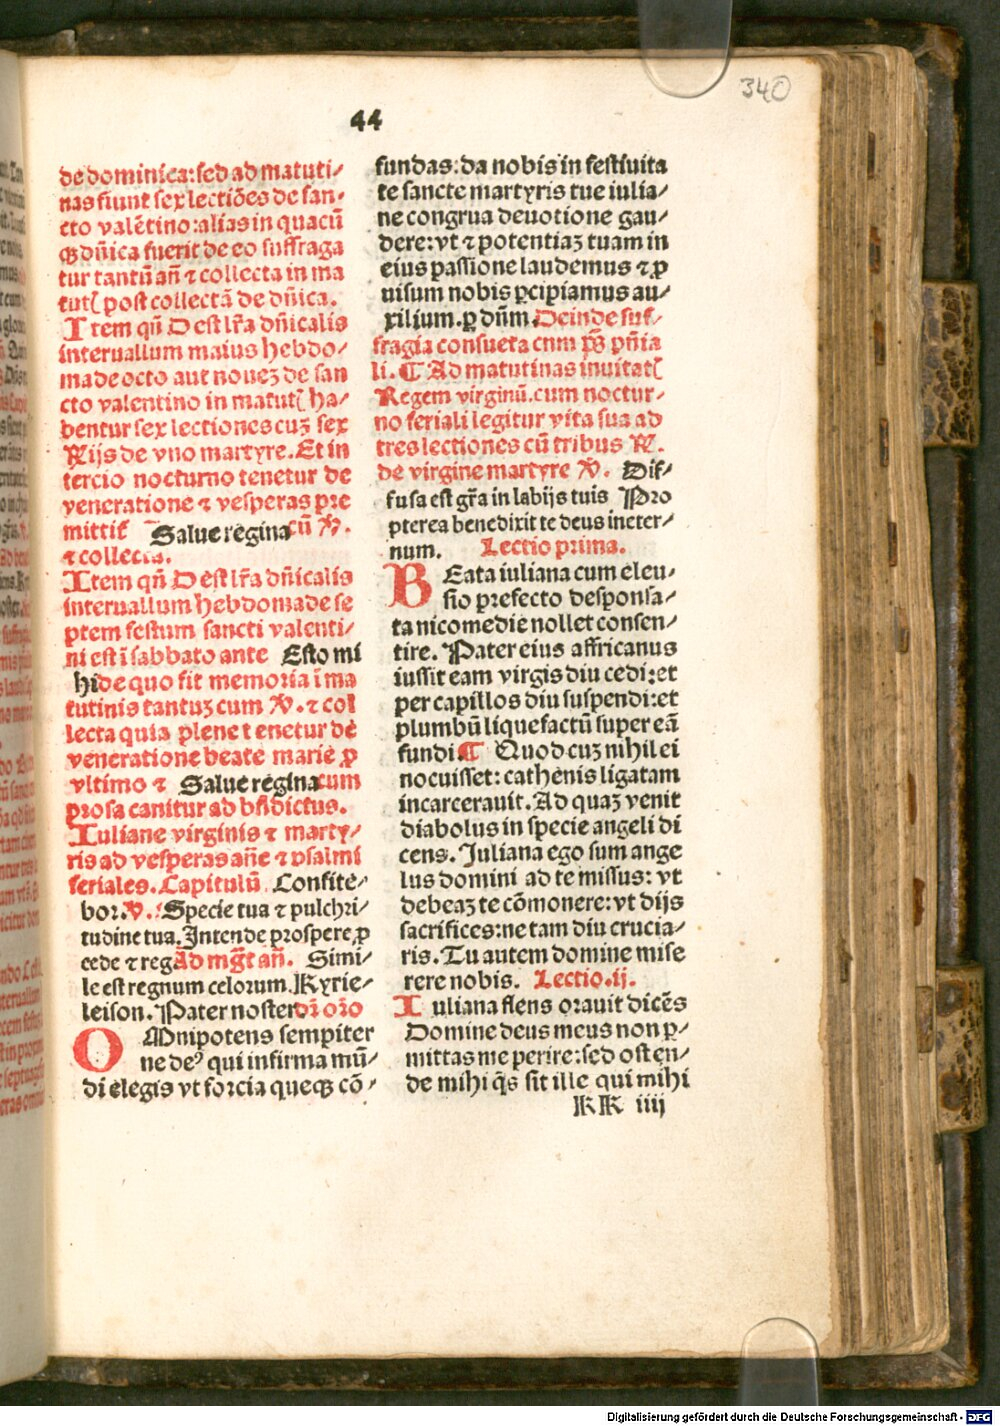 340
44
de dominica: sed ad matuti⸗
nas fiunt sex lectiões de san⸗
cto valētino: alias in quacū
qꝫ dñica fuerit de eo suffraga
tur tantū añ ⁊ collecta in ma
tutꝭ post collectā de dñica.
Item qñ D est lr̃a dñicalis
interuallum maius hebdo⸗
made octo aut noueꝫ de san
cto valentino in matutꝭ ha⸗
bentur sex lectiones cuꝫ sex
℟ijs de vno martyre. Et in
tercio nocturno tenetur de
veneratione ⁊ vesperas pre
mittit̃ Salue regina cū ℣.
⁊ collecta.
Item qñ D est lr̃a dñicalis
interuallum hebdomade se
ptem festum sancti valenti⸗
ni est ī sabbato ante Esto mi
hi de quo fit memoria ī ma
tutinis tantuꝫ cum ℣. ⁊ col
lecta quia plene tenetur de
veneratione beate marie ꝑ
vltimo ⁊ Salue regina cum
prosa canitur ad bñdictus.
Iuliane virginis ⁊ marty⸗
ris ad vesperas añe ⁊ psalmi
feriales. Capitulū Confite⸗
bor. ℣. Specie tua ⁊ pulchri⸗
tudine tua. Intende prospere ꝓ
cede ⁊ reg Ad mg̃t añ. Simi⸗
le est regnum celorum. Kyrie⸗
leison. Pater noster dñ orõ
OMnipotens sempiter
ne de⁹ qui infirma mū⸗
di elegis vt forcia queqꝫ cō⸗
fundas: da nobis in festiuita
te sancte martyris tue iulia⸗
ne congrua deuotione gau⸗
dere: vt ⁊ potentiaꝫ tuam in
eius passione laudemus ⁊ ꝓ
uisum nobis ꝑcipiamus au⸗
xilium. ꝑ dñm. Deinde suf⸗
fragia consueta cum pš pñia
li. ¶ Ad matutinas inuitatꝭ
Regem virginū. cum noctur⸗
no feriali legitur vita sua ad
tres lectiones cū tribus ℟.
de virgine martyre ℣. Dif⸗
fusa est gr̃a in labijs tuis Pro
pterea benedixit te deus in eter⸗
num. Lectio prima.
BEata iuliana cum eleu⸗
sio prefecto desponsa⸗
ta nicomedie nollet consen⸗
tire. Pater eius affricanus
iussit eam virgis diu cedi: et
per capillos diu suspendi: et
plumbū liquefactū super eā
fundi ¶ Quod cuꝫ nihil ei
nocuisset: cathenis ligatam
incarcerauit. Ad quaꝫ venit
diabolus in specie angeli di
cens. Iuliana ego sum ange
lus domini ad te missus: vt
debeaꝫ te cōmonere: vt dijs
sacrifices: ne tam diu crucia⸗
ris. Tu autem domine mise
rere nobis. Lectio .ij.
Iuliana flens orauit dicēs
Domine deus meus non ꝑ⸗
mittas me perire: sed osten⸗
de mihi q̃s sit ille qui mihi
KK iiij
Digitalisierung gefördert durch die Deutsche Forschungsgemeinschaft - DFG